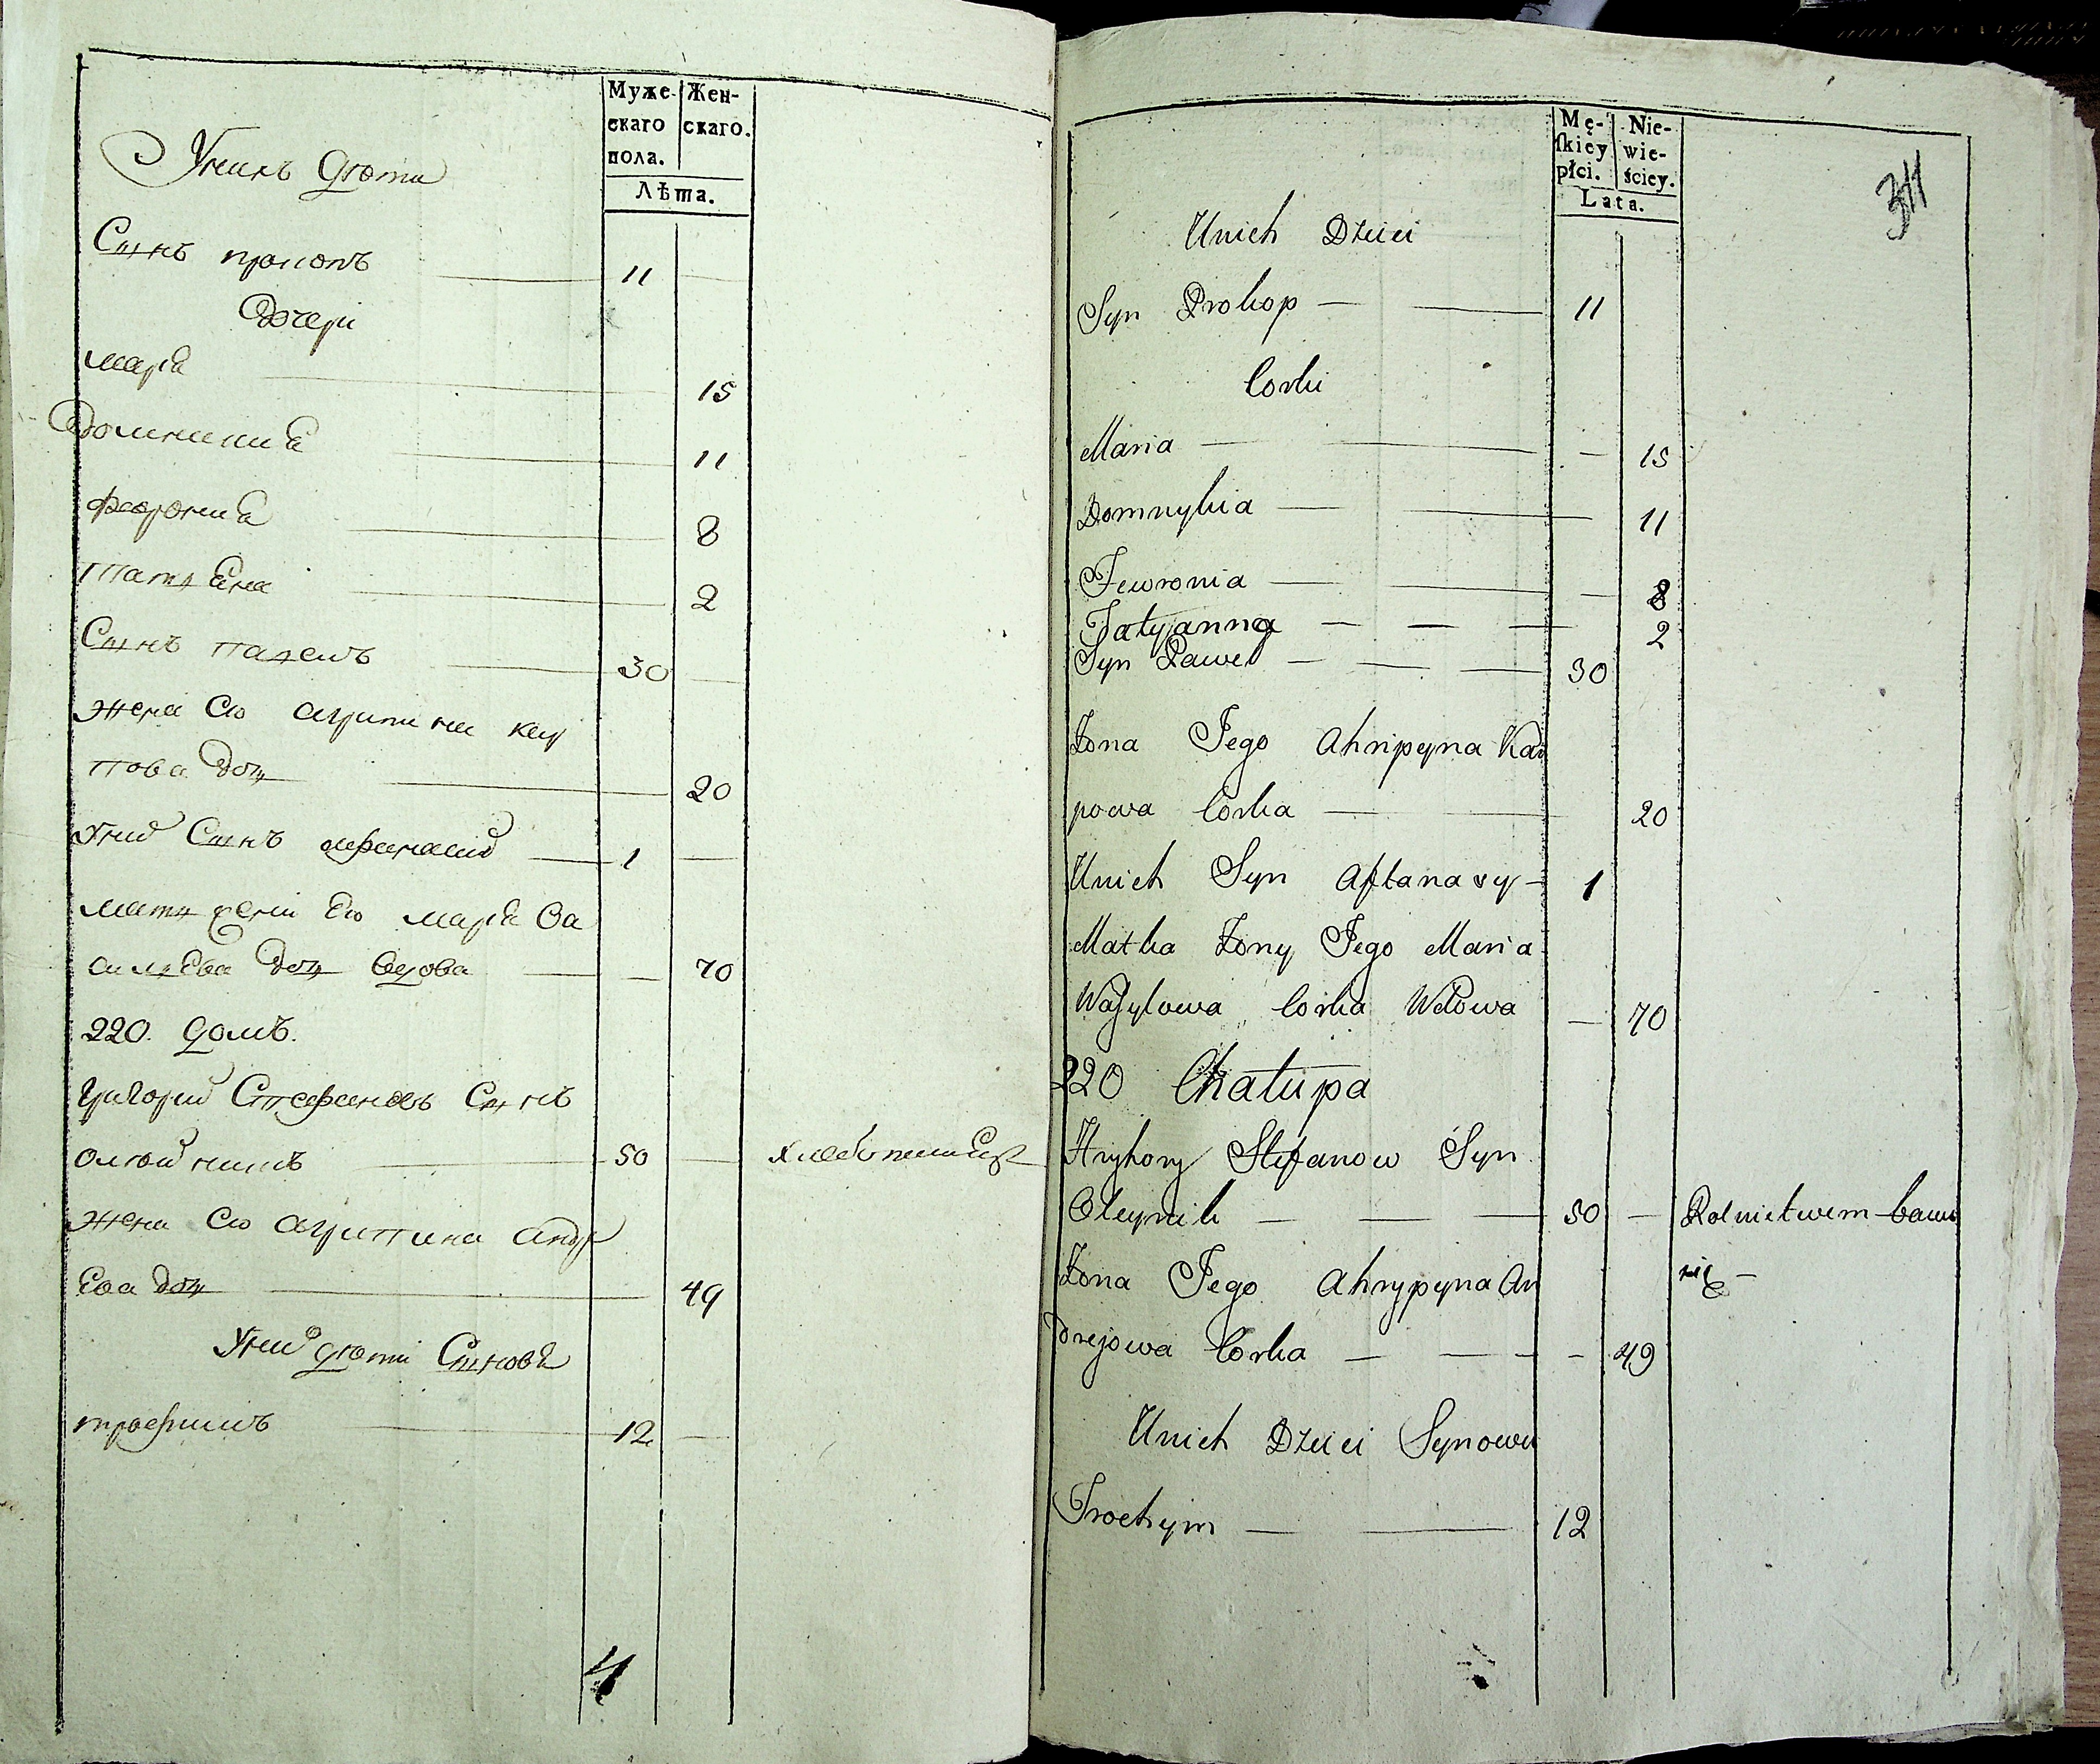 Муже-
скаго
пола.
Жен-
скаго.
Лѣта.
Унихъ Дѣти
Сынъ прокопъ 11
Дочери
марія 15
Домникиія 11
февронія 8
татьяна 2
Сынъ павелъ 30
жена Ево агрипина кар
пова доч 20
Уних Сынъ афанасий 1
мать жены Ево марія Ва
сильева доч вдова 70
220. Домъ.
Григорий Стефановъ Сынъ
олѣйникъ 50
жена Ево агрипина андр
Ева доч 49
Уних дѣти Синовя
трофимъ 12
4
Mę-
ſkiey
płci.
Nie-
wie-
ściey.
Lata.
311
Unich Dzieci
Syn Prokop — 11
Corki
Maria — 15
Domnykia — 11
Fewronia — 8
Tatyanna — 2
Syn Paweł — 30
Zona Jego Ahripyna Kar
powa Corka — 20
Unich Syn Aftanasy — 1
Matka Zony Jego Maria
Wasylowa Corka Wdowa — 70
220 Chałupa
Hryhory Stefanow Syn
Oleynik — 50 — Rolnictwem bawi
się —
Zona Jego Ahrypyna An
drejowa Corka — 49
Unich Dzieci Synowie
Trochym — 12